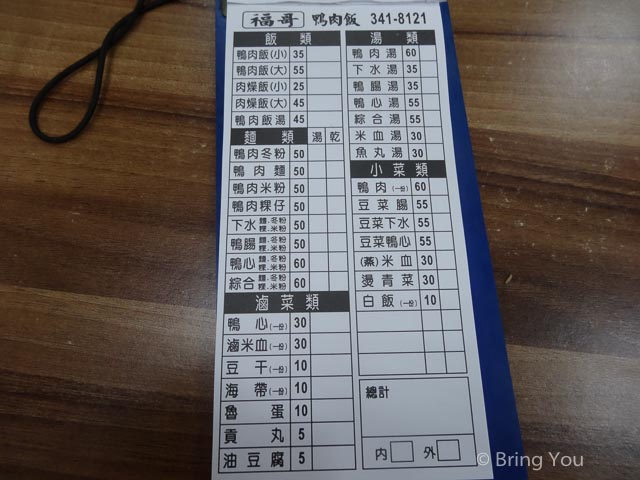 福哥 鴨肉飯 341-8121
飯類
鴨肉飯(小) 35
鴨肉飯(大) 55
肉燥飯(小) 25
肉燥飯(大) 45
鴨肉飯湯 45
麵類 湯 乾
鴨肉冬粉 50
鴨肉麵 50
鴨肉米粉 50
鴨肉粿仔 50
下水 麵.冬粉 粿.米粉 50
鴨腸 麵.冬粉 粿.米粉 50
鴨心 麵.冬粉 粿.米粉 60
綜合 麵.冬粉 粿.米粉 60
滷菜類
鴨心(一份) 30
滷米血(一份) 30
豆干(一份) 10
海帶(一份) 10
魯蛋 10
貢丸 5
油豆腐 5
湯類
鴨肉湯 60
下水湯 35
鴨腸湯 35
鴨心湯 55
綜合湯 55
米血湯 30
魚丸湯 30
小菜類
鴨肉(一份) 60
豆菜腸 55
豆菜下水 55
豆菜鴨心 55
(蒸)米血 30
燙青菜 30
白飯(一份) 10
總計
內 外
© Bring You